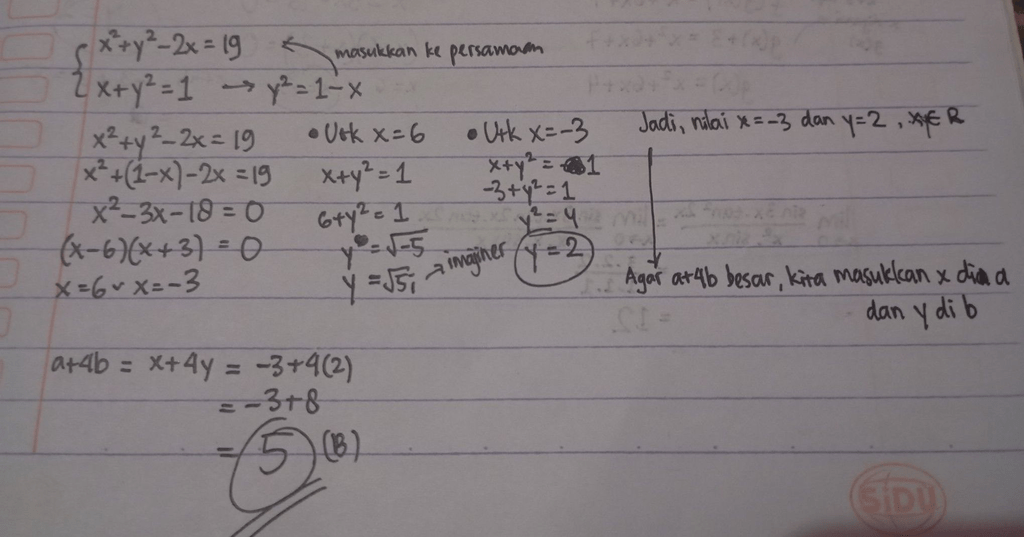 x²+y²-2x = 19 ← masukkan ke persamaan
x+y² = 1 → y² = 1-x
x²+y²-2x = 19
x²+(1-x)-2x = 19
x²-3x-18 = 0
(x-6)(x+3) = 0
x = 6 ∨ x = -3
• Utk x = 6
x+y² = 1
6+y² = 1
y = √-5
y = √5i → imajiner
• Utk x = -3
x+y² = 1
-3+y² = 1
y² = 4
y = 2
Jadi, nilai x = -3 dan y = 2, x,y ∈ R
Agar a+4b besar, kita masukkan x di a
dan y di b
a+4b = x+4y = -3+4(2)
= -3+8
= 5 (B)
SiDU